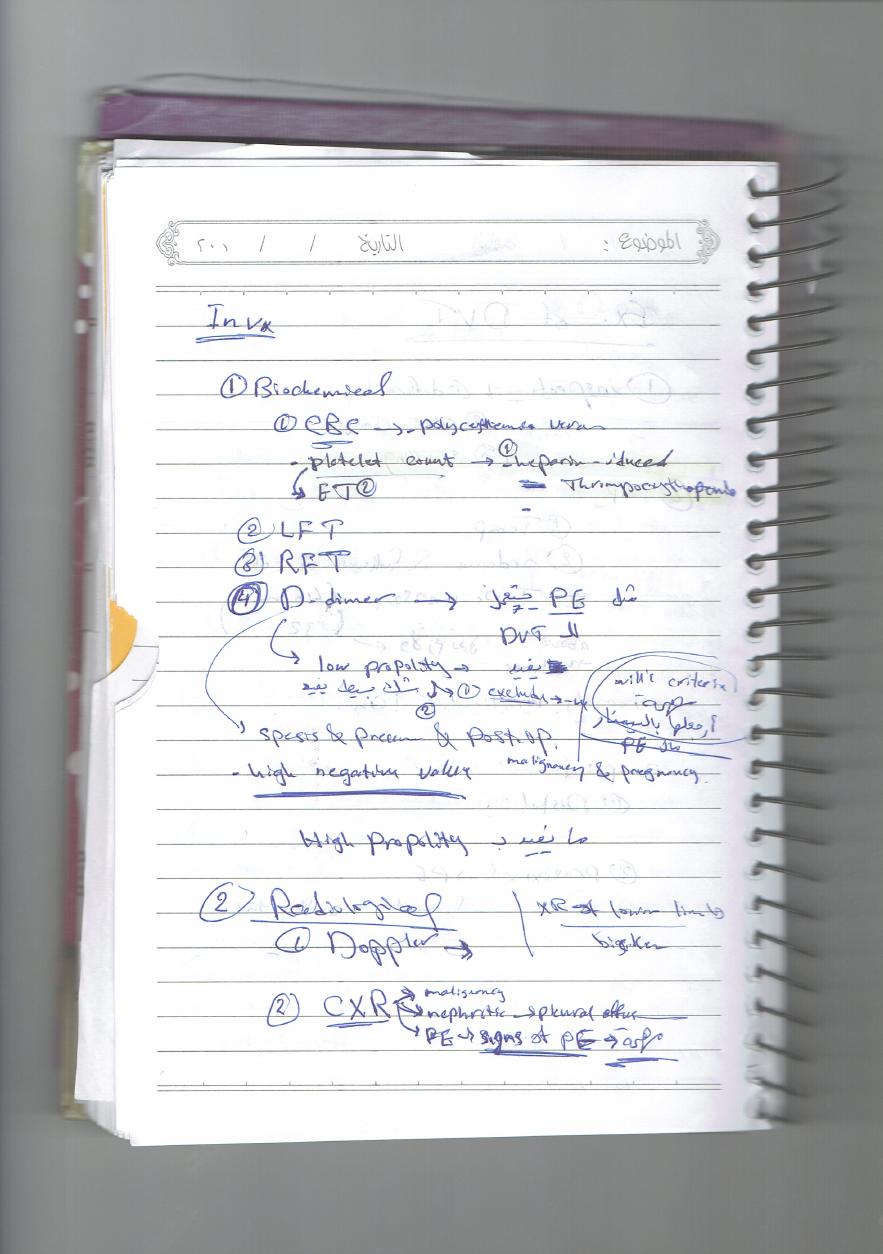 الموضوع : التاريخ / / ٢٠٠
Invx
① Biochemical
① CBC → polycythemia vera
- platelet count → ① heparin-iduced
ET ② Thrimpocythopenia
② LFT
③ RFT
④ D-dimer → PE مثل
DVT الـ
low propolity → يفيد
شك بسيط يفيد ① exclude → -ve
②
will's criteria
مهمة
أرجعلها بالسمنار
PE
spesis & & post.op.
malignancy & pregnancy
- high negative value
High propolity ما يفيد
② Radiological
XR of lower limb
① Doppler →
② CXR → malignancy
→ nephritic → pleural effus
→ PE → signs of PE → مهم